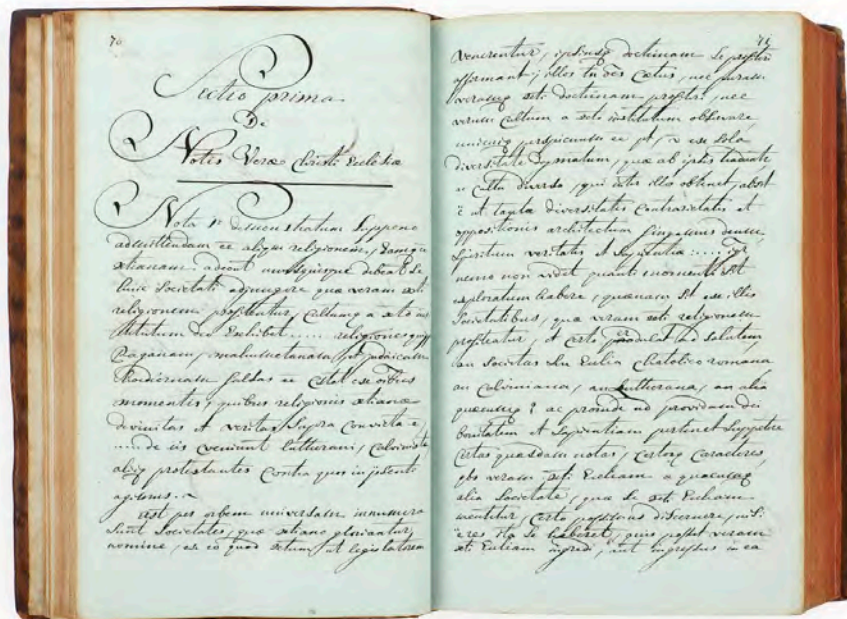 70
Sectio prima
De
Notis Veræ Christi Ecclesiæ
Nota 1ª demonstratum suppono
admittendam ee aliqm religionem, eamque
xtianam: adeout unusquisque debeat se
huic Societati adjungere quæ veram xti
religionem profitentur, cultumq a xto ins
titutum deo Exhibet..... religionesque
Paganam, mahumetanam, et judaicam
hodiernam falsas ee Constat ex omibus
momentis, quibus religionis xtianæ
devinitas et veritas supra convicta e,
.....de iis veniunt lutherani, Calvinistæ
aliiq protestantes Contra quos in præsenti
agimus.
est per orbem universam innumeræ
sunt Societates, quæ xtiano gloriantur
nomine, ex eo quod xtum ut legislatorem
71
venerentur, ipsiusq doctrinam se profiteri
affirmant; illos tn oēs cœtus, nec puram
veramq xti doctrinam profiteri, nec
verum Cultum a xto institutum observare
unicuiq perspicuum ee pt, v ex sola
diversitate dogmatum, quæ ab ipsis traduntur
u cultu diverso, qui inter illos obtinet, absit
e ut tantæ diversitatis Contrarietatis et
oppositionis architectum fingamus deum
spiritum veritatis et sapientiæ:....igr
nemo non videt quanti momenti sit
exploratum habere, quænam sit ex illis
Societatibus, quæ veram xti religionem
profiteatur, et certo perducat ad salutem
an societas in Ecclia Chatolico romana
an Calviniana, an Lutherana, an alia
quæcumq? ac proinde ad providam dei
bonitatem et sapientiam pertinet suppetere
Certas quasdam notas, certosq Caracteres,
qbs veram xti Eccliam a quacumq
alia Societate, quæ se xti Eccliam
mentitur, Certo possimus discernere, nisi
eres ita se haberet, quis posset veram
xti Eccliam ingredi, aut ingressus in ea